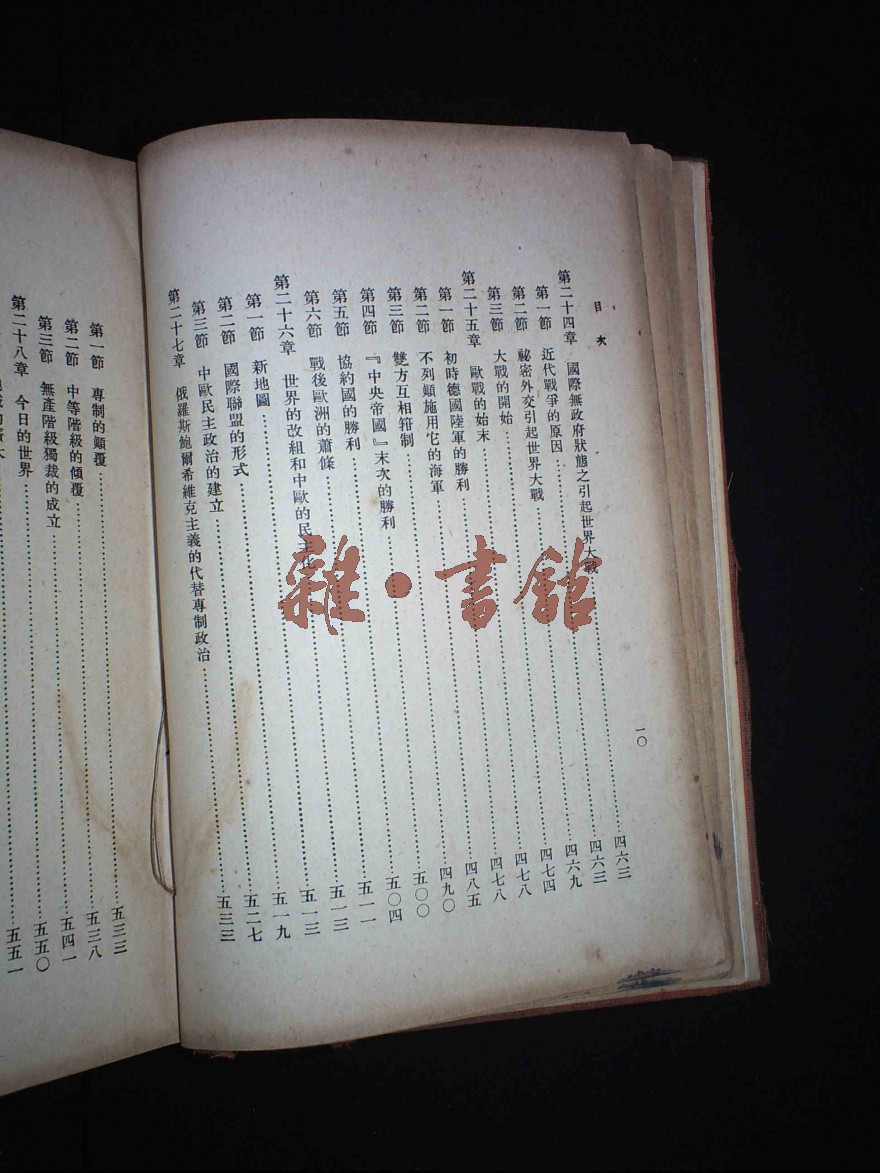 目次
一〇
第二十四章 國際無政府狀態之引起世界大戰……四六三
第一節 近代戰爭的原因……四六三
第二節 祕密外交引起世界大戰……四六九
第三節 大戰的開始……四七四
第二十五章 歐戰的始末……四七八
第一節 初時德國陸軍的勝利……四七八
第二節 不列顛施用它的海軍……四八五
第三節 雙方互相箝制……四九〇
第四節 『中央帝國』末次的勝利……五〇〇
第五節 協約國的勝利……五〇四
第六節 戰後歐洲的蕭條……五一一
第二十六章 世界的改組和中歐的民主化……五一三
第一節 新地圖……五一三
第二節 國際聯盟的形式……五一九
第三節 中歐民主政治的建立……五二七
第二十七章 俄羅斯鮑爾希維克主義的代替專制政治……五三三
第一節 專制的顛覆……五三三
第二節 中等階級的傾覆……五三八
第三節 無產階級獨裁的成立……五四一
第二十八章 今日的世界……五五〇
五五一
雜·書館